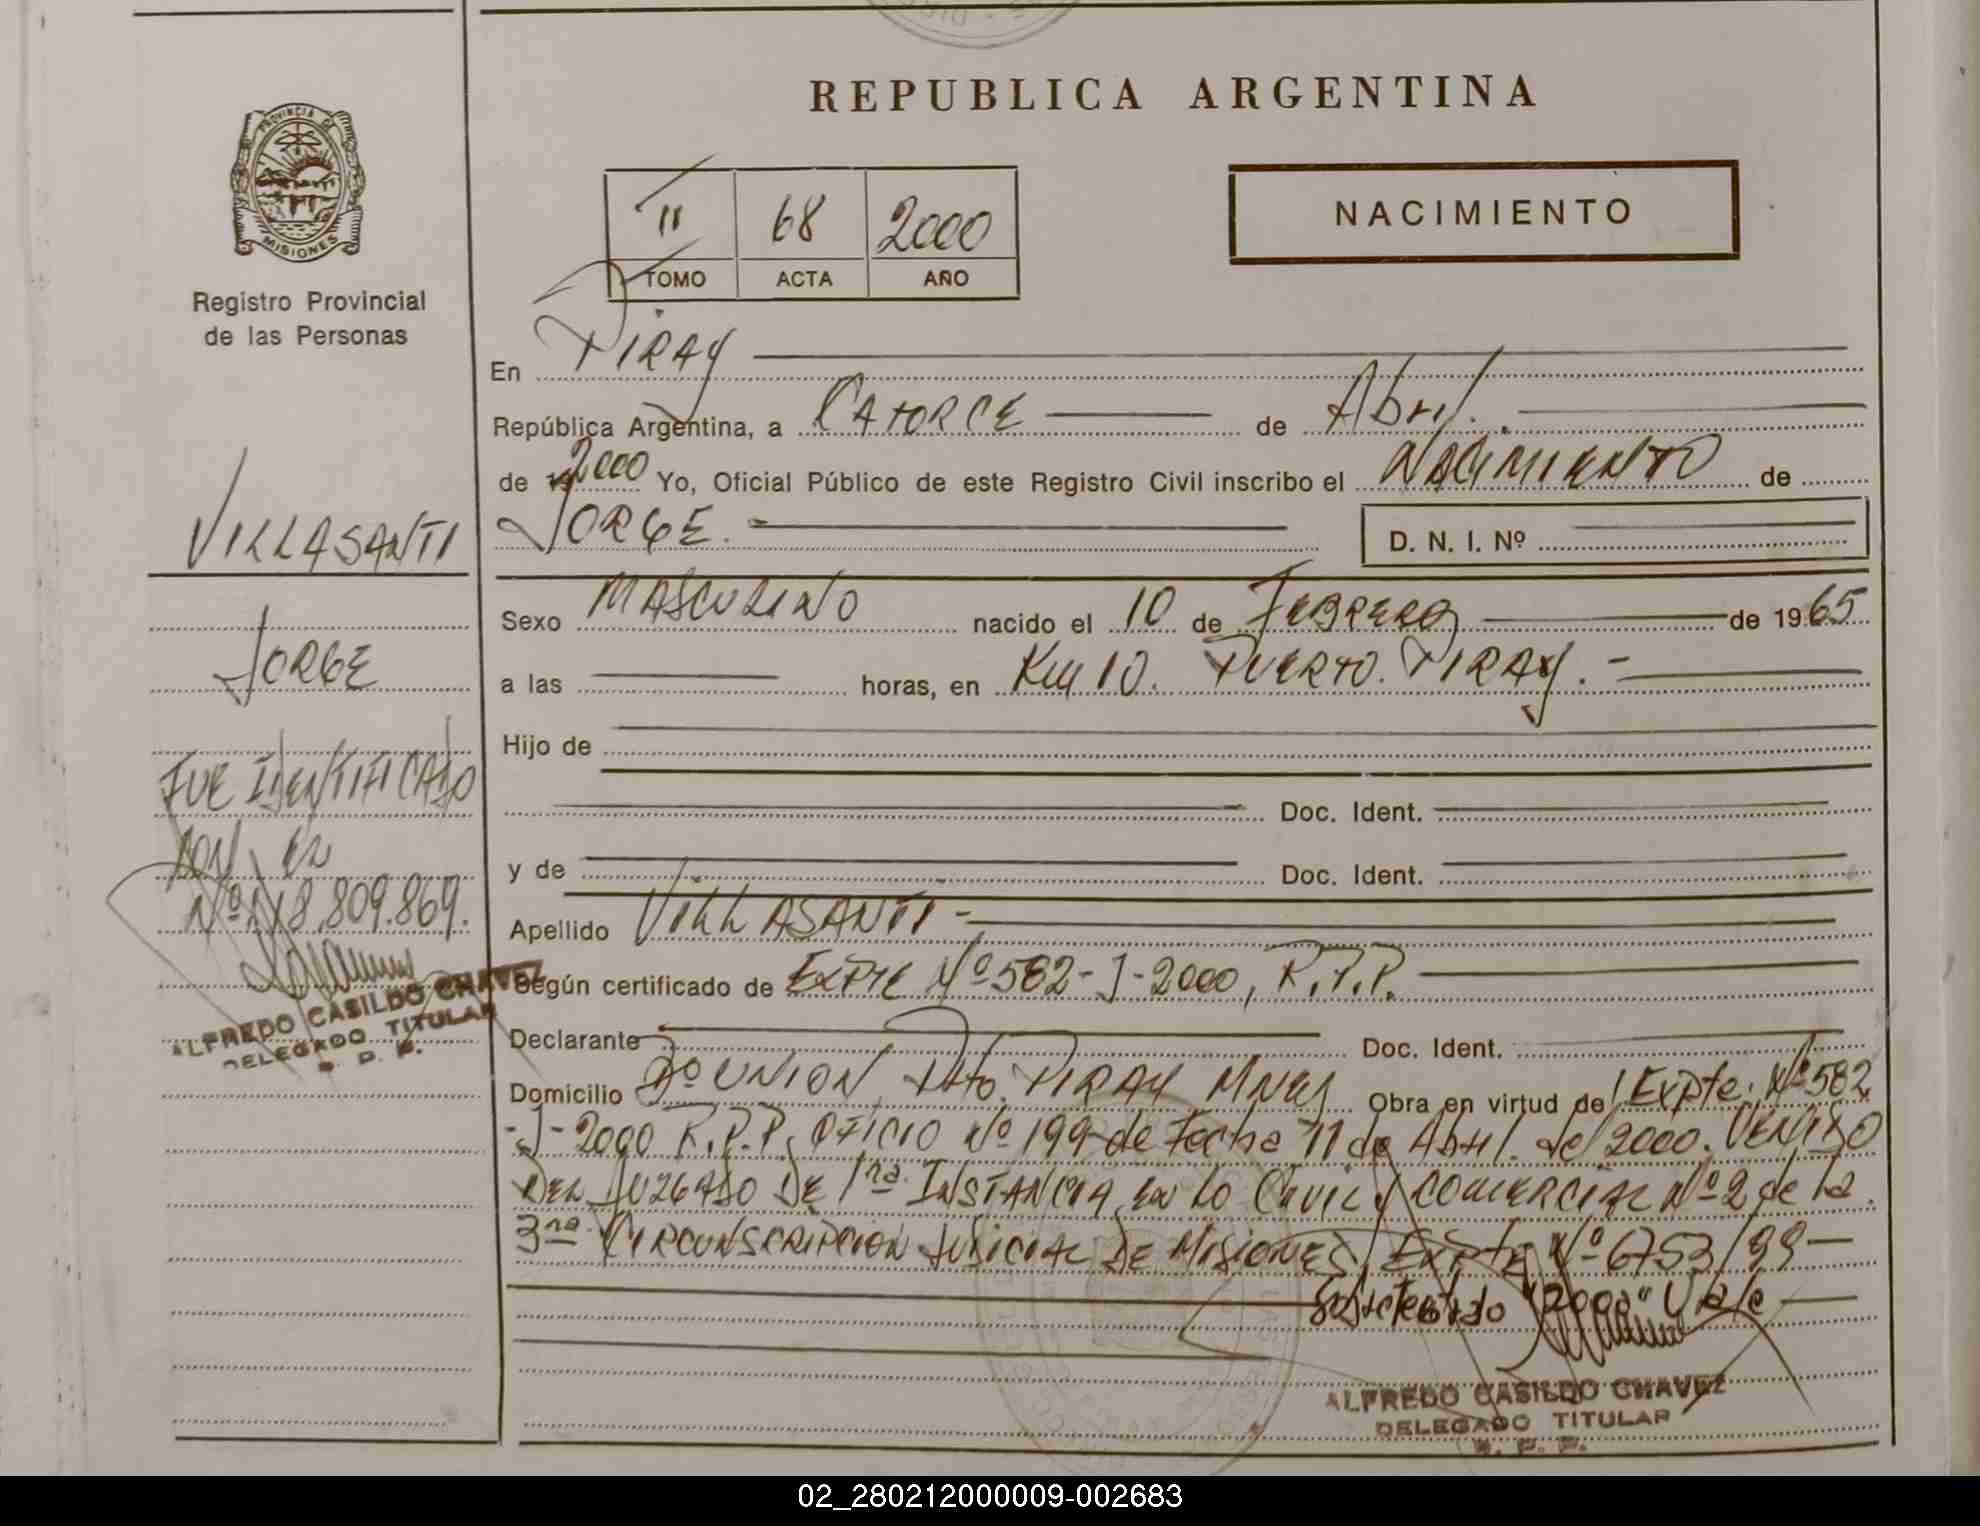 REPUBLICA ARGENTINA
PROVINCIA DE
MISIONES
Registro Provincial
de las Personas
II 68 2000
TOMO ACTA AÑO
NACIMIENTO
En PIRAY
República Argentina, a CATORCE de Abril.
de 2000 Yo, Oficial Público de este Registro Civil inscribo el NACIMIENTO de
JORGE.
D. N. I. Nº
VILLASANTI
JORGE
FUE IDENTIFICADO
CON
Nº 18.809.869.
ALFREDO CASILDO CHAVEZ
DELEGADO TITULAR
R. P. P.
Sexo MASCULINO nacido el 10 de FEBRERO de 1965
a las horas, en Km 10. PUERTO. PIRAY.-
Hijo de
Doc. Ident.
y de Doc. Ident.
Apellido VILLASANTI-
Según certificado de EXPTE Nº 582-J-2000, R.P.P.
Declarante Doc. Ident.
Domicilio Bº UNION, Pto. PIRAY MNES Obra en virtud de Expte. Nº 582
-J-2000 R.P.P. OFICIO Nº 199 de Fecha 11 de Abril de 2000. VENIDO
DEL JUZGADO DE 1ra. INSTANCIA EN LO CIVIL y COMERCIAL Nº 2 de la
3ra CIRCUNSCRIPCION JUDICIAL DE MISIONES, EXPTE Nº 6753/99—
"2000" Vale
ALFREDO CASILDO CHAVEZ
DELEGADO TITULAR
R. P. P.
02_280212000009-002683